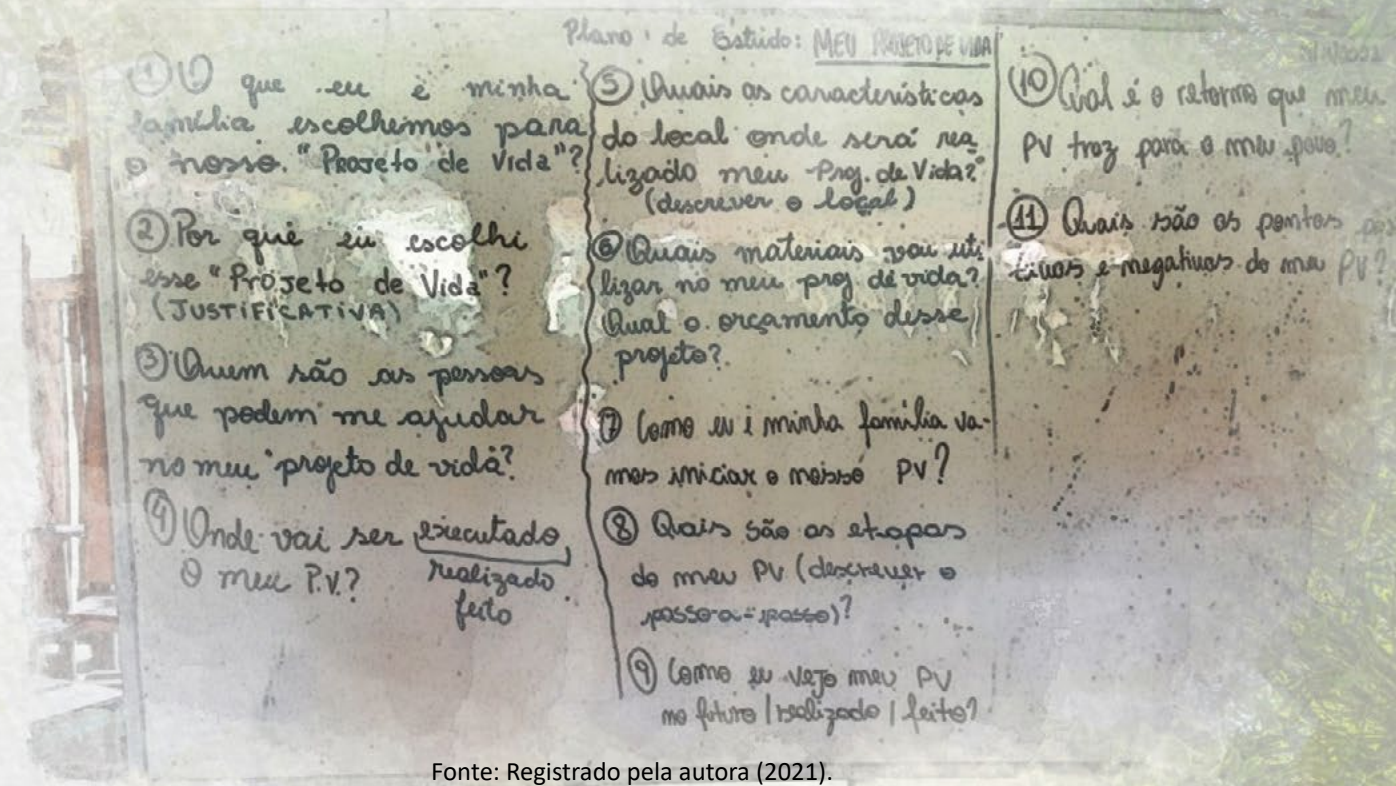 Plano de Estudo: MEU PROJETO DE VIDA
① O que eu e minha
família escolhemos para
o nosso "Projeto de Vida"?
② Por quê eu escolhi
esse "Projeto de Vida"?
(JUSTIFICATIVA)
③ Quem são as pessoas
que podem me ajudar
no meu "projeto de vida?
④ Onde vai ser executado
O meu P.V.? realizado
feito
⑤ Quais as características
do local onde será rea
lizado meu Proj. de Vida?
(descrever o local)
⑥ Quais materiais vou uti
lizar no meu proj de vida?
Qual o orçamento desse
projeto?
⑦ Como eu i minha família va-
mos iniciar o nosso PV?
⑧ Quais são as etapas
do meu PV (descrever o
passo-a-passo)?
⑨ Como eu vejo meu PV
no futuro | realizado | feito?
⑩ Qual é o retorno que meu
PV traz para o meu povo?
⑪ Quais são os pontos pos
itivos e negativos do meu PV?
Fonte: Registrado pela autora (2021).